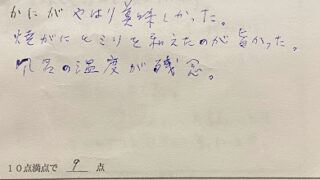 かにが やはり美味しかった。
焼がにとミソを和えたのが旨かった。
風呂の温度が残念。
10点満点で 9 点